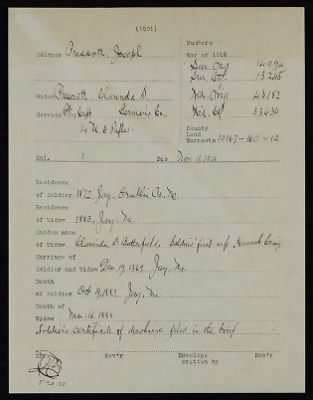 (1501)
Soldier Prescott, Joseph
Numbers
War of 1812
Sur. Orig. 14974
Sur. Ctf. 15245
Widow Prescott, Clarinda D.
Wid. Orig. 43182
Wid. Ctf. 33636
Service Capt.
4 U. S. Rifles
County
Land
Warrants 20167-160-12
Enl. ?
Dis Nov.
Residence
of Soldier 1872, Jay, Franklin Co. Me.
Residence
of Widow 1883, Jay, Me.
Maiden name
of Widow Clarinda D. Butterfield. Soldier's first wife, Hannah
Marriage of
Soldier and Widow Dec. 17, 1869, Jay, Me.
Death
of Soldier Oct. 19, 1882, Jay, Me.
Death of
Widow Mar. 16, 1889
Soldier's certificate of discharge filed in the brief
By
Rev'r
Envelope
written by
Rev'r